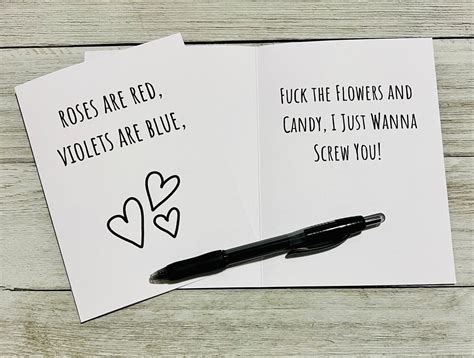 ROSES ARE RED,
VIOLETS ARE BLUE,
FUCK THE FLOWERS AND
CANDY, I JUST WANNA
SCREW YOU!